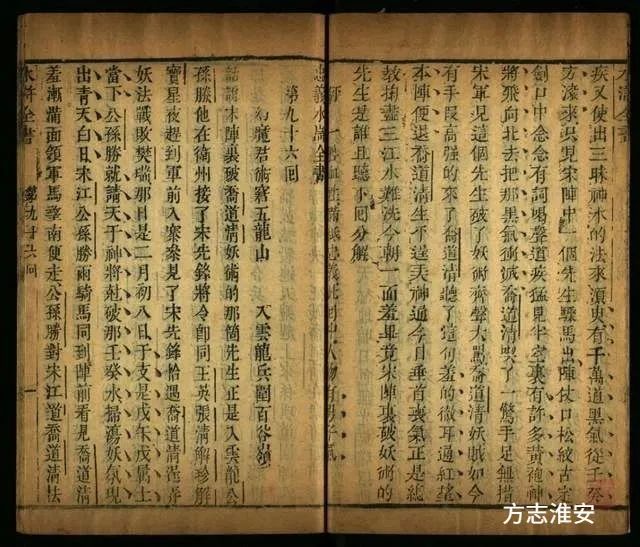 水滸全書
疾又使出三昧神水的法來須臾有千萬道黑氣從壬癸
方滾來只見宋陣中一個先生驟馬出陣仗口松紋古定
劍口中念念有詞喝聲道疾猛見半空裏有許多黃袍神
將飛向北去把那黑氣衝滅喬道清吃了一驚手足無措
宋軍見這個先生破了妖術齊聲大罵喬道清妖賊如今
有手段高強的來了喬道清聽了這句羞的徹耳通紅望
本陣便退喬道清生平逞天神通今日垂首喪氣正是總
教掬盡三江水難洗今朝一面羞畢竟宋陣裏破妖術的
先生是誰且聽下回分解
忠義水滸全書
第九十六回
幻魔君術窘五龍山 入雲龍兵圍百谷嶺
話說宋陣裏破喬道清妖術的那箇先生正是入雲龍公
孫勝他在衛州接了宋先鋒將令即同王英張清解珍解
寶星夜趕到軍前入寨參見了宋先鋒恰遇喬道清逞弄
妖法戰敗樊瑞那日是二月初八日干支是戊午戊屬土
當下公孫勝就請天干神將尅破那壬癸水掃蕩妖氛現
出青天白日宋江公孫勝兩騎馬同到陣前看見喬道清
羞慚滿面領軍馬望南便走公孫勝對宋江道喬道清法
水滸全書 第九十六回 一
方志淮安